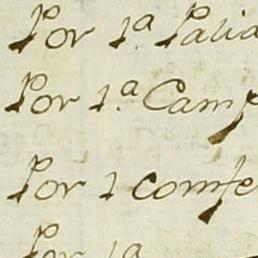 Por 1ª Palia
Por 1ª Camp
Por 1 comfe
Por 1ª